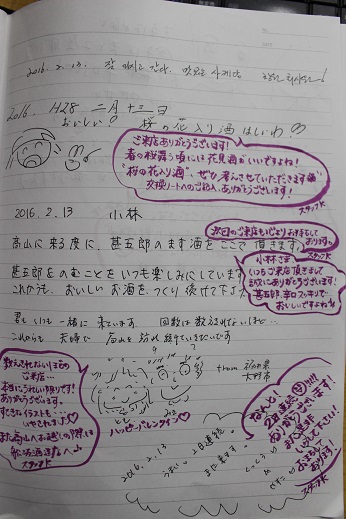 2016. 2. 13.
2016. H28 二月十三日
おいしい! 桜の花入り酒はいいね
ご来店ありがとうございます!
春の桜舞う頃には花見酒がいいですよね!
"桜の花入り酒"、ぜひ
交換ノートへのご記入、ありがとうございます!
スタッフ
2016. 2. 13 小林
次回のご来店も心よりお待ちして
おります
スタッフ
高山に来る度に、甚五郎のます酒をここで頂きます。
甚五郎をのむことをいつも楽しみにしています。
これからも、おいしいお酒をつくり続けて下さい
小林さま
いつもご来店頂きまして
誠にありがとうございます!
甚五郎、辛口スッキリで
おいしいですよね
君もいつも一緒に来ています。 回数は数えきれないほど…
これからも 夫婦で 高山を訪れ続けていきたいです
数えきれないほどの
ご来店…
本当にうれしい限りです!
ありがとうございます!
すてきなイラストも…
いやされます♪
また高山へお越しの際は
スタッフ
ハッピーバレンタイン♡
from 福井県
大野市
2016. 2. 13
うまい。2日連続
また来ます。
なんと!
2日連続!!!!
ありがとうございます!
また是非
いらして下さい!
お待ちして
おります!
スタッフ